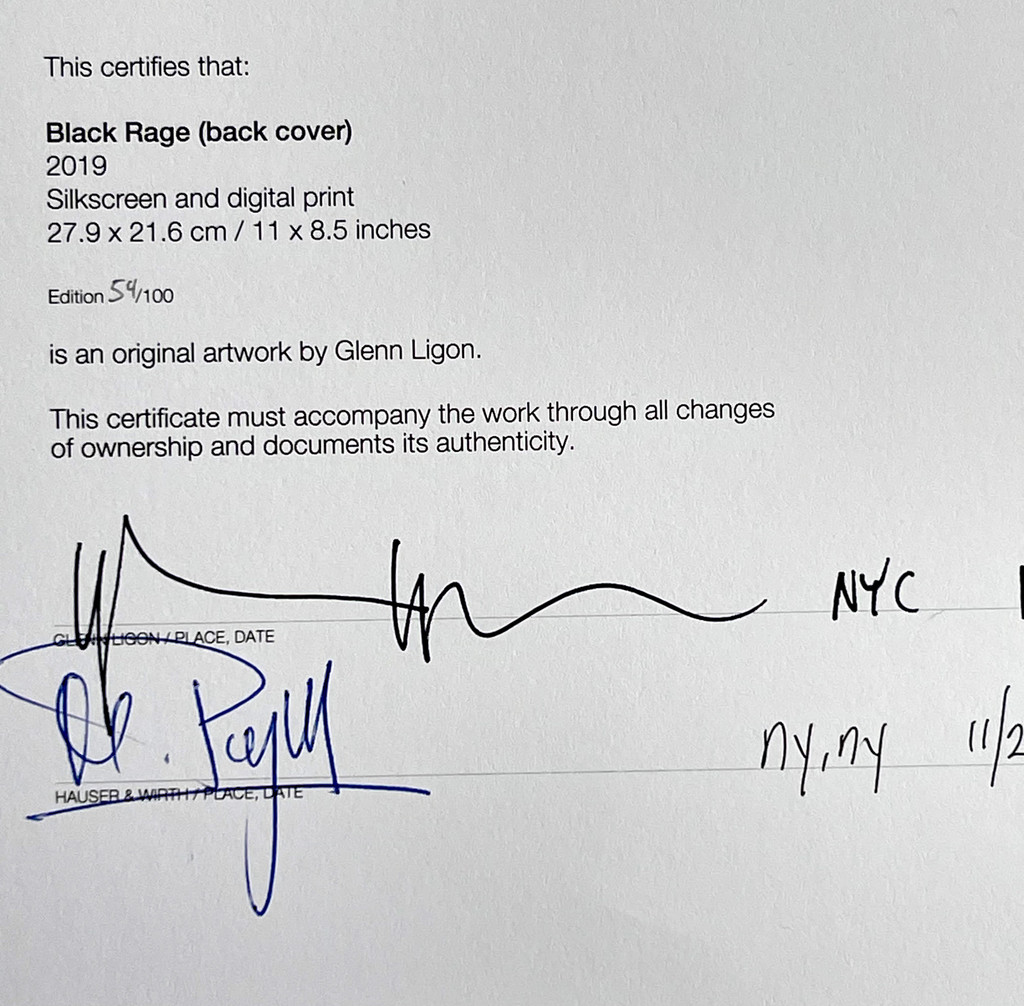 This certifies that:
Black Rage (back cover)
2019
Silkscreen and digital print
27.9 x 21.6 cm / 11 x 8.5 inches
Edition 54/100
is an original artwork by Glenn Ligon.
This certificate must accompany the work through all changes
of ownership and documents its authenticity.
NYC
GLENN LIGON / PLACE, DATE
NY, NY 11/2
HAUSER & WIRTH / PLACE, DATE